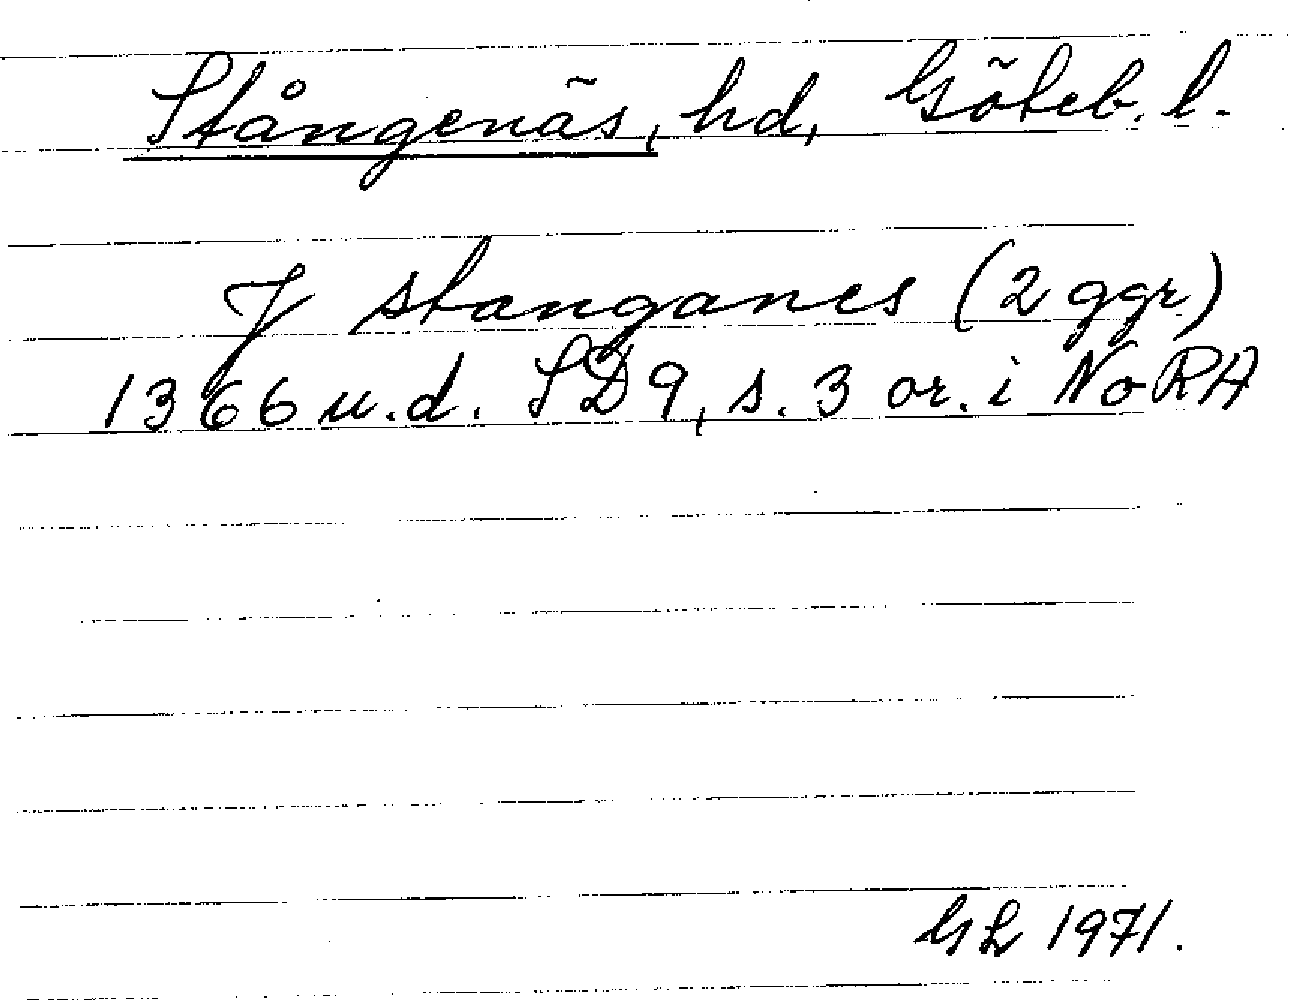 Stångenäs, hd, Göteb. l.
J stanganes (2 ggr)
1366 u.d. SD9, s. 3 or. i NoRA
GL 1971.